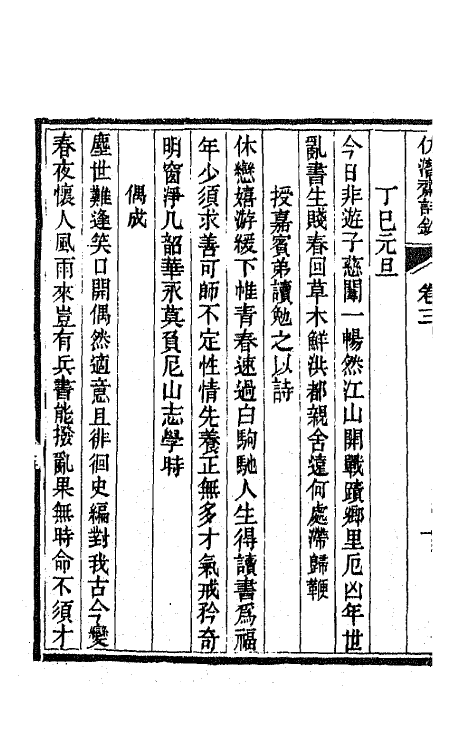 卷三
丁巳元旦
今日非遊子慈闈一暢然江山開戰蹟鄉里厄凶年世
亂書生賤春回草木鮮洪都親舍遠何處滯歸鞭
授嘉賓弟讀勉之以詩
休戀嬉游緩下帷青春速過白駒馳人生得讀書爲福
年少須求善可師不定性情先養正無多才氣戒矜奇
明窗淨几韶華永莫負尼山志學時
偶成
塵世難逢笑口開偶然適意且徘徊史編對我古今變
春夜懷人風雨來豈有兵書能撥亂果無時命不須才